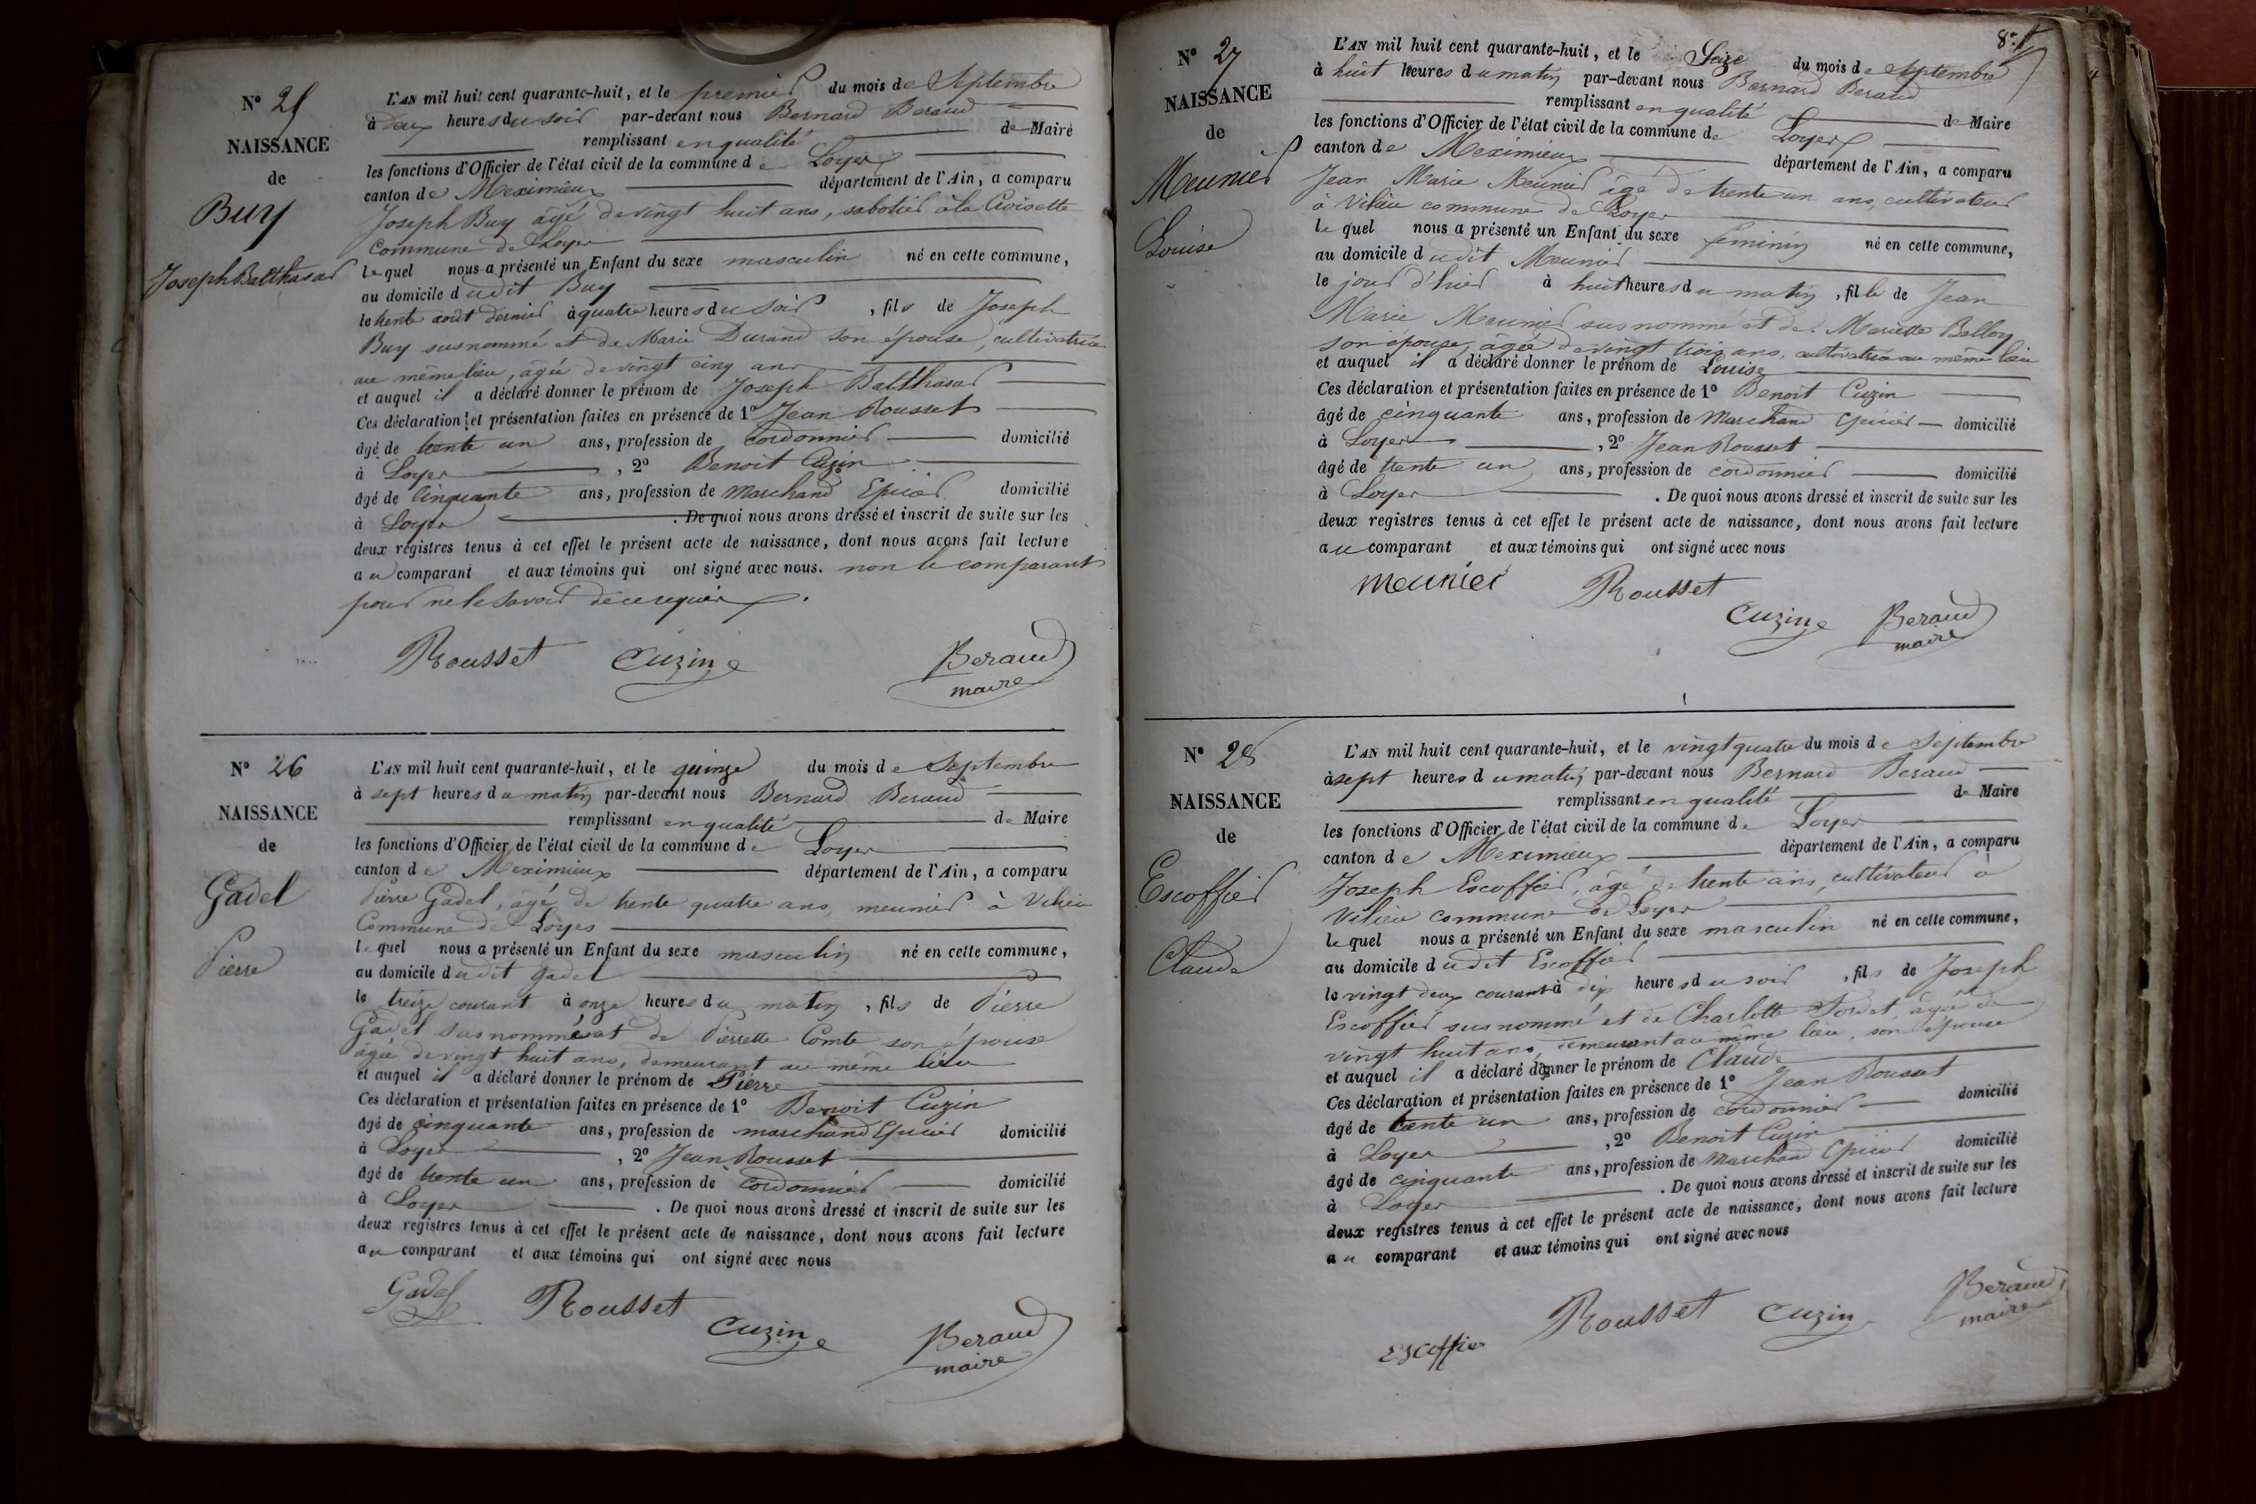 N° 25
NAISSANCE
de
Buy
Joseph Balthasar
L'AN mil huit cent quarante-huit, et le premier du mois de Septembre
à deux heures du soir par-devant nous Bernard Beraud
remplissant en qualité de Maire
les fonctions d'Officier de l'état civil de la commune de Loyes
canton de Meximieux département de l'Ain, a comparu
Joseph Buy âgé de vingt huit ans, sabotier à la Croisette
commune de Loyes
lequel nous a présenté un Enfant du sexe masculin né en cette commune,
au domicile dudit Buy
le trente août dernier à quatre heures du soir, fils de Joseph
Buy susnommé et de Marie Durand son épouse, cultivatrice
au même lieu, agée de vingt cinq ans
et auquel il a déclaré donner le prénom de Joseph Balthasar
Ces déclaration et présentation faites en présence de 1° Jean Rousset
âgé de trente un ans, profession de cordonnier domicilié
à Loyes, 2° Benoit Cuzin
âgé de Cinquante ans, profession de Marchand Epicier domicilié
à Loyes. De quoi nous avons dressé et inscrit de suite sur les
deux registres tenus à cet effet le présent acte de naissance, dont nous avons fait lecture
au comparant et aux témoins qui ont signé avec nous. non le comparant
pour ne le savoir de ce requis.
Rousset Cuzin Beraud
maire
N° 26
NAISSANCE
de
Gadel
Pierre
L'AN mil huit cent quarante-huit, et le quinze du mois de Septembre
à sept heures du matin par-devant nous Bernard Beraud
remplissant en qualité de Maire
les fonctions d'Officier de l'état civil de la commune de Loyes
canton de Meximieux département de l'Ain, a comparu
Pierre Gadel, âgé de trente quatre ans, meunier à Vilieu
Commune de Loyes
lequel nous a présenté un Enfant du sexe masculin né en cette commune,
au domicile dudit Gadel
le treize courant à onze heures du matin, fils de Pierre
Gadel susnommé et de Pierrette Comte son épouse
âgée de vingt huit ans, demeurant au même lieu
et auquel il a déclaré donner le prénom de Pierre
Ces déclaration et présentation faites en présence de 1° Benoit Cuzin
âgé de cinquante ans, profession de marchand Epicier domicilié
à Loyes, 2° Jean Rousset
âgé de trente un ans, profession de cordonnier domicilié
à Loyes. De quoi nous avons dressé et inscrit de suite sur les
deux registres tenus à cet effet le présent acte de naissance, dont nous avons fait lecture
au comparant et aux témoins qui ont signé avec nous
Gadel Rousset Cuzin Beraud
maire
8
N° 27
NAISSANCE
de
Meunier
Louise
L'AN mil huit cent quarante-huit, et le Seize du mois de Septembre
à huit heures du matin par-devant nous Bernard Beraud
remplissant en qualité de Maire
les fonctions d'Officier de l'état civil de la commune de Loyes
canton de Meximieux département de l'Ain, a comparu
Jean Marie Meunier âgé de trente un ans, cultivateur
à Vilieu commune de Loyes
lequel nous a présenté un Enfant du sexe féminin né en cette commune,
au domicile dudit Meunier
le jour d'hier à huit heures du matin, fille de Jean
Marie Meunier susnommé et de Mariette Belloy
son épouse, âgée de vingt trois ans, cultivatrice au même lieu
et auquel il a déclaré donner le prénom de Louise
Ces déclaration et présentation faites en présence de 1° Benoit Cuzin
âgé de cinquante ans, profession de Marchand Epicier domicilié
à Loyes, 2° Jean Rousset
âgé de trente un ans, profession de cordonnier domicilié
à Loyes. De quoi nous avons dressé et inscrit de suite sur les
deux registres tenus à cet effet le présent acte de naissance, dont nous avons fait lecture
au comparant et aux témoins qui ont signé avec nous
Meunier Rousset Cuzin Beraud
maire
N° 28
NAISSANCE
de
Escoffier
Claude
L'AN mil huit cent quarante-huit, et le vingt quatre du mois de Septembre
à sept heures du matin par-devant nous Bernard Beraud
remplissant en qualité de Maire
les fonctions d'Officier de l'état civil de la commune de Loyes
canton de Meximieux département de l'Ain, a comparu
Joseph Escoffier, âgé de trente ans, cultivateur à
Vilieu commune de Loyes
lequel nous a présenté un Enfant du sexe masculin né en cette commune,
au domicile dudit Escoffier
le vingt deux courant à dix heures du soir, fils de Joseph
Escoffier susnommé et de Charlotte âgée de
vingt huit ans, demeurant au même lieu, son épouse
et auquel il a déclaré donner le prénom de Claude
Ces déclaration et présentation faites en présence de 1° Jean Rousset
âgé de trente un ans, profession de cordonnier domicilié
à Loyes, 2° Benoit Cuzin
âgé de cinquante ans, profession de Marchand Epicier domicilié
à Loyes. De quoi nous avons dressé et inscrit de suite sur les
deux registres tenus à cet effet le présent acte de naissance, dont nous avons fait lecture
au comparant et aux témoins qui ont signé avec nous
Escoffier Rousset Cuzin Beraud
maire